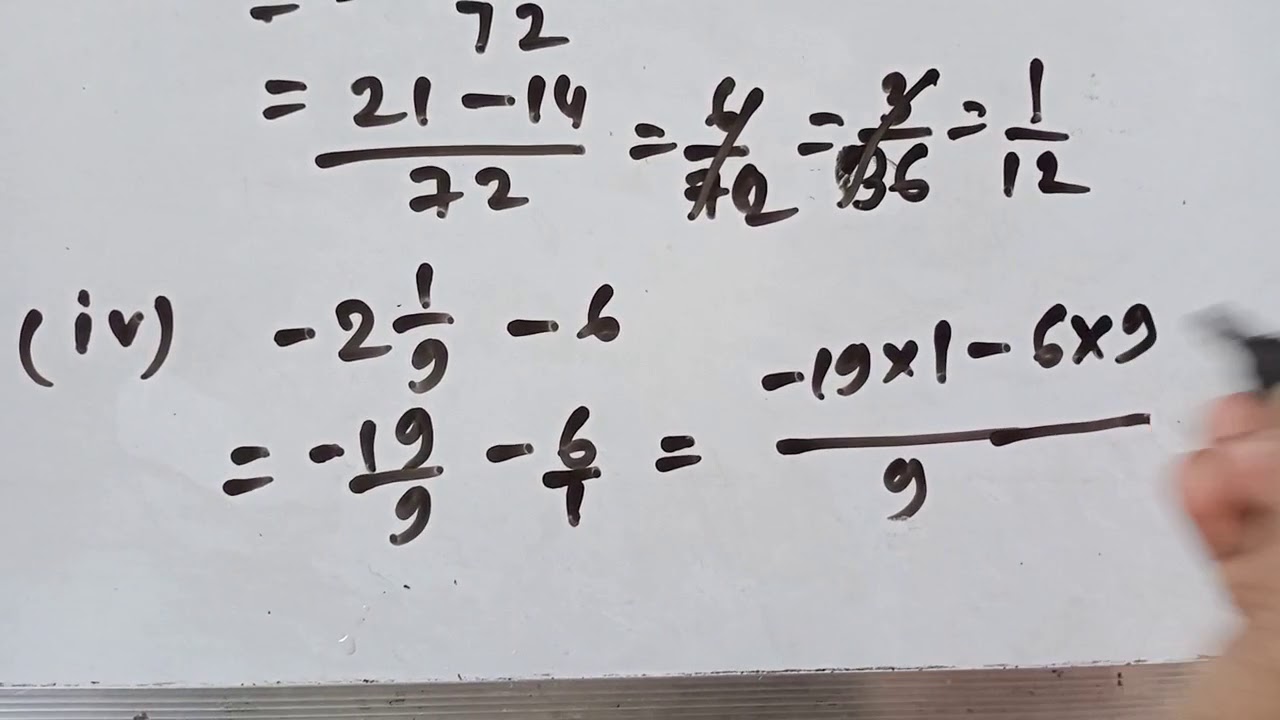 72
= 21 - 14 / 72 = 6/72 = 3/36 = 1/12
(iv) -2 1/9 - 6
= -19/9 - 6/1 = -19×1 - 6×9 / 9